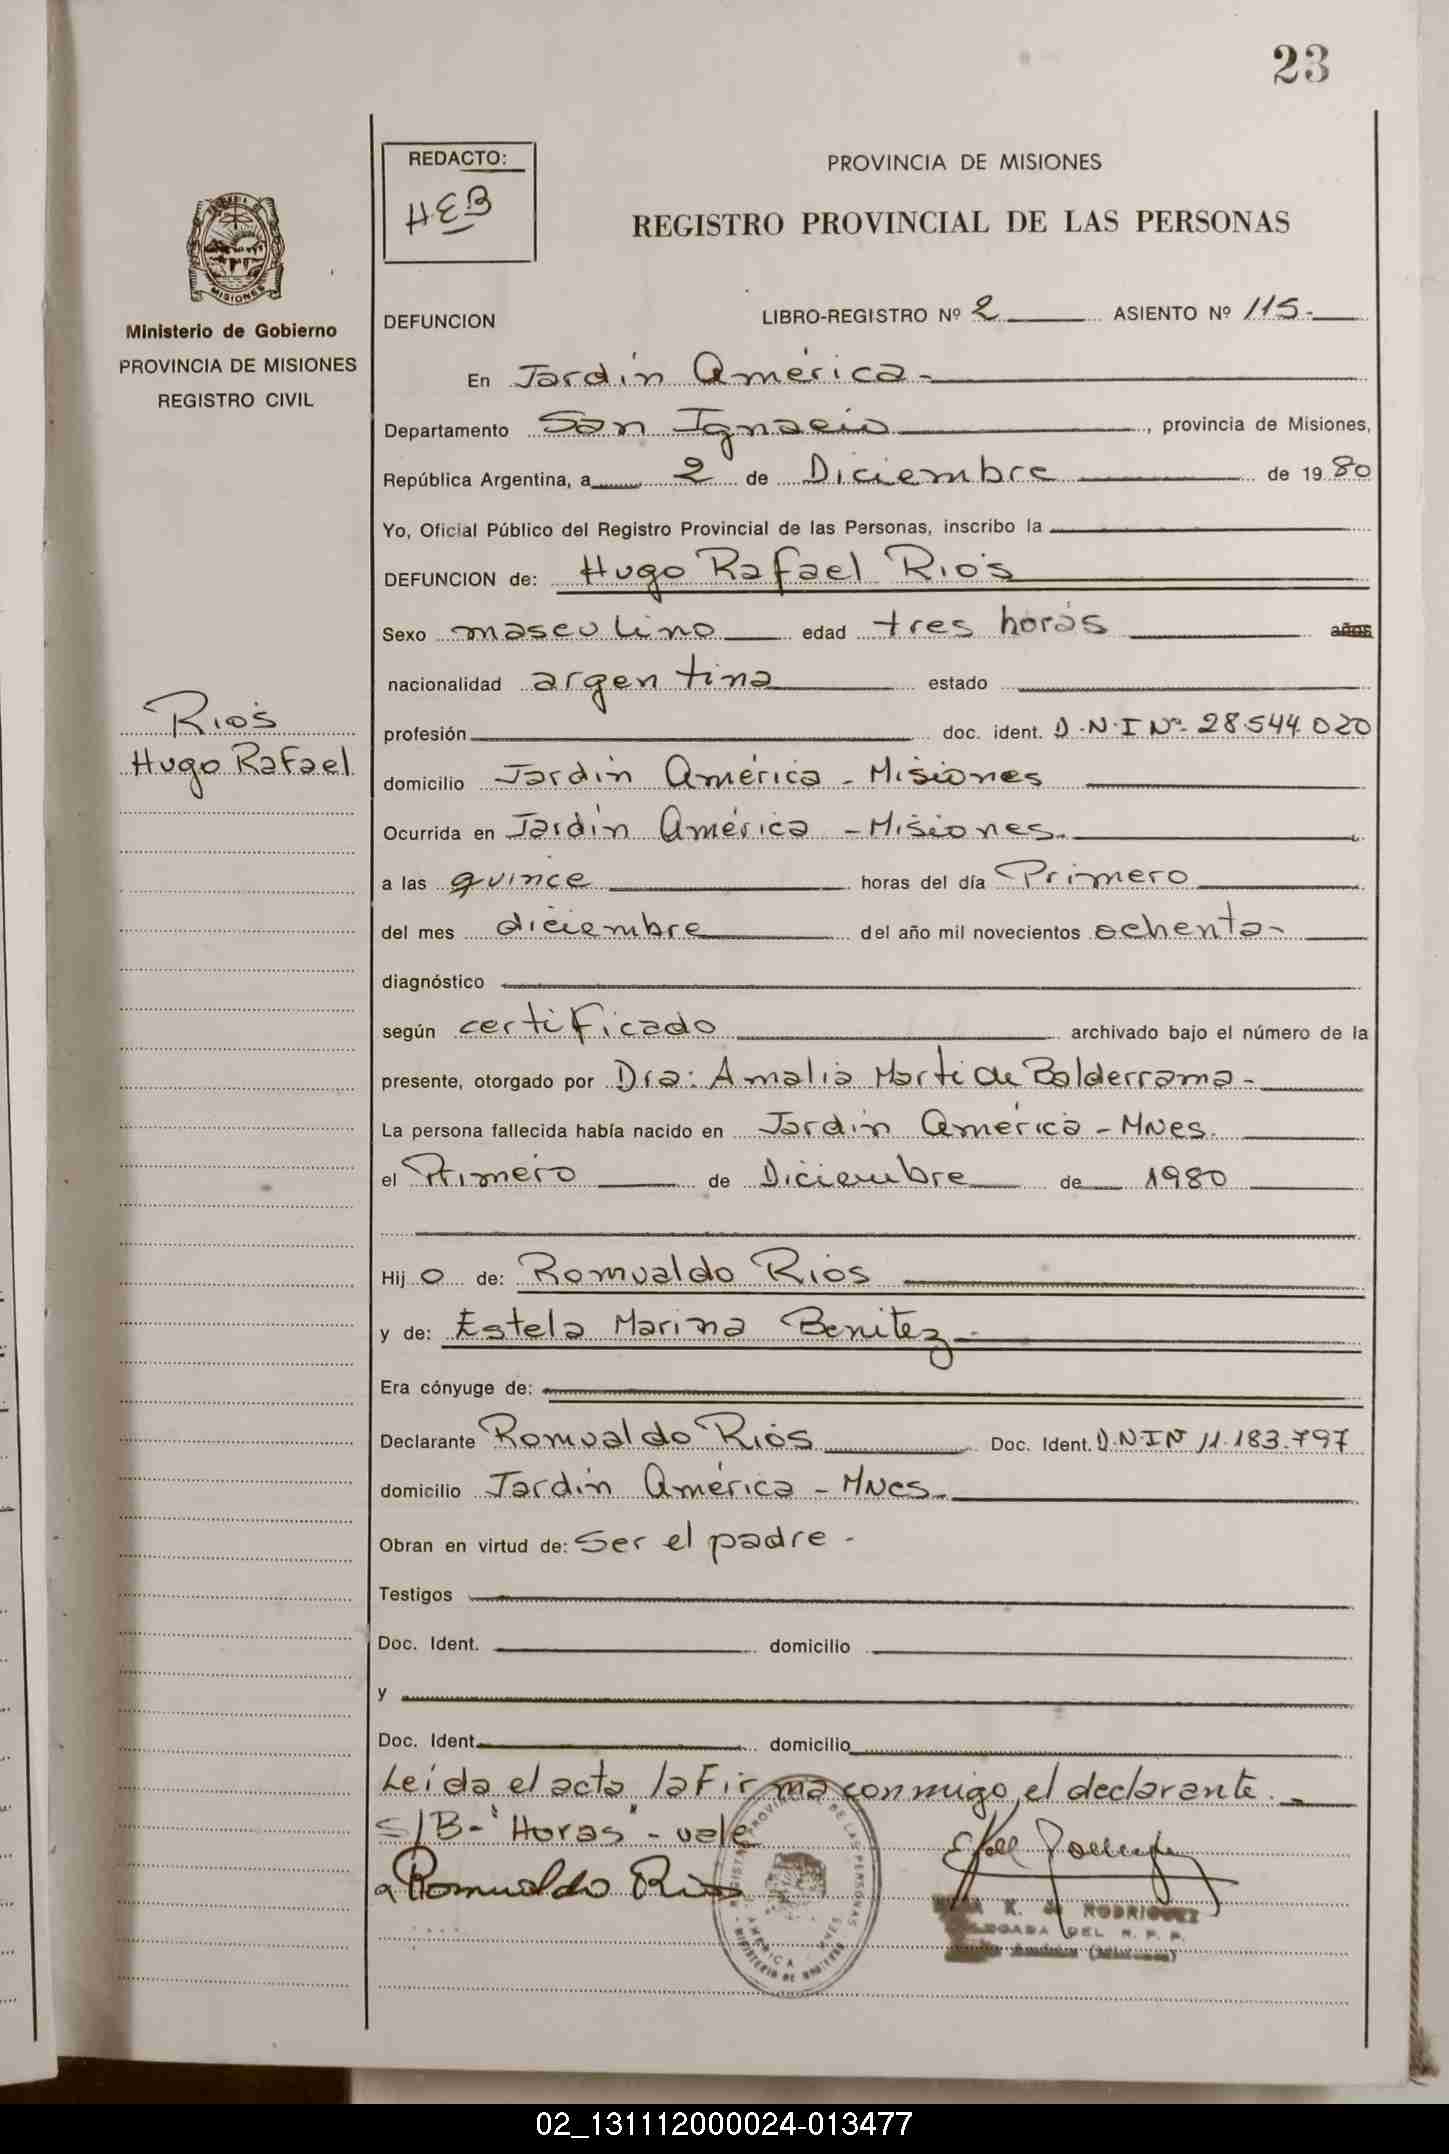 23
REDACTO:
HEB
PROVINCIA DE MISIONES
REGISTRO PROVINCIAL DE LAS PERSONAS
MISIONES
Ministerio de Gobierno
PROVINCIA DE MISIONES
REGISTRO CIVIL
Rios
Hugo Rafael
DEFUNCION LIBRO-REGISTRO Nº 2 ASIENTO Nº 115-
En Jardín América-
Departamento San Ignacio, provincia de Misiones,
República Argentina, a 2 de Diciembre de 1980
Yo, Oficial Público del Registro Provincial de las Personas, inscribo la
DEFUNCION de: Hugo Rafael Rios
Sexo masculino edad tres horas años
nacionalidad argentina estado
profesión doc. ident. D.N.I Nº 28.544.020
domicilio Jardín América - Misiones
Ocurrida en Jardín América - Misiones.
a las quince horas del día Primero
del mes diciembre del año mil novecientos ochenta-
diagnóstico
según certificado archivado bajo el número de la
presente, otorgado por Dra: Amalia Marti de Balderrama-
La persona fallecida había nacido en Jardín América - Mnes.
el Primero de Diciembre de 1980
Hijo de: Romualdo Rios
y de: Estela Marina Benitez-
Era cónyuge de:
Declarante Romualdo Rios Doc. Ident. D.N.I Nº 11.183.797
domicilio Jardín América - Mnes-
Obran en virtud de: Ser el padre -
Testigos
Doc. Ident. domicilio
y
Doc. Ident. domicilio
Leída el acta, la Firma conmigo, el declarante.-
S/B- "Horas" - vale
Romualdo Rios
K. de RODRIGUEZ
DEL R. P. P.
(Misiones)
02_131112000024-013477